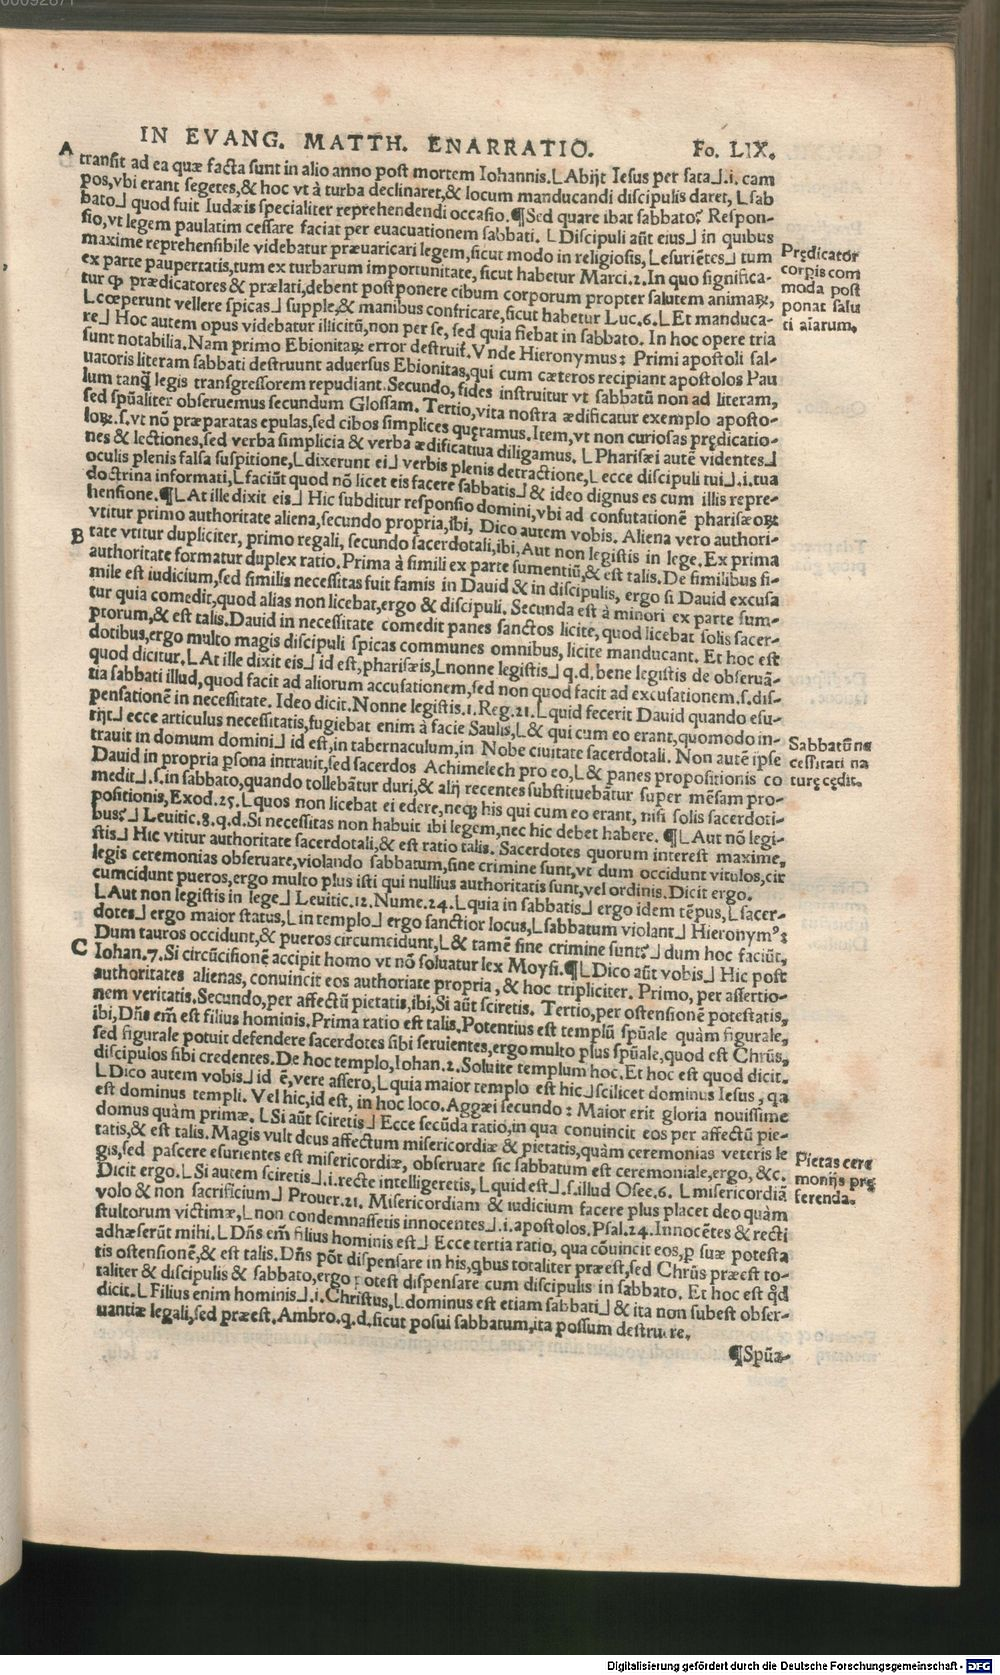 00092871
IN EVANG. MATTH. ENARRATIO. Fo. LIX.
A
transit ad ea quæ facta sunt in alio anno post mortem Iohannis.⌊Abijt Iesus per sata⌋.i. cam
pos,vbi erant segetes,& hoc vt à turba declinaret,& locum manducandi discipulis daret, ⌊sab
bato⌋ quod fuit Iudæis specialiter reprehendendi occasio.¶Sed quare ibat sabbato? Respon-
sio,vt legem paulatim cessare faciat per euacuationem sabbati. ⌊Discipuli aũt eius⌋ in quibus
maxime reprehensibile videbatur præuaricari legem,sicut modo in religiosis,⌊esuriẽtes⌋ tum
ex parte paupertatis,tum ex turbarum importunitate, sicut habetur Marci.2.In quo significa-
tur ꝙ prædicatores & prælati,debent postponere cibum corporum propter salutem animaꝝ,
⌊cœperunt vellere spicas⌋ supple,& manibus confricare,sicut habetur Luc.6.⌊Et manduca-
re⌋ Hoc autem opus videbatur illicitũ,non per se, sed quia fiebat in sabbato. In hoc opere tria
sunt notabilia.Nam primo Ebionitaꝝ error destruit̃.Vnde Hieronymus: Primi apostoli sal-
uatoris literam sabbati destruunt aduersus Ebionitas,qui cum cæteros recipiant apostolos Pau
lum tanq̃ legis transgressorem repudiant.Secundo, fides instruitur vt sabbatũ non ad literam,
sed spũaliter obseruemus secundum Glossam. Tertio,vita nostra ædificatur exemplo aposto-
loꝝ.s.vt nõ præparatas epulas,sed cibos simplices quęramus.Item,vt non curiosas prędicatio-
nes & lectiones,sed verba simplicia & verba ædificatiua diligamus. ⌊Pharisæi autẽ videntes⌋
oculis plenis falsa suspitione,⌊dixerunt ei⌋ verbis plenis detractione,⌊ecce discipuli tui⌋.i.tua
doctrina informati,⌊faciũt quod nõ licet eis facere sabbatis⌋ & ideo dignus es cum illis repre-
hensione.¶⌊At ille dixit eis⌋ Hic subditur responsio domini,vbi ad confutationẽ pharisæoꝝ
vtitur primo authoritate aliena,secundo propria,ibi, Dico autem vobis. Aliena vero authori-
B
tate vtitur dupliciter, primo regali, secundo sacerdotali,ibi,Aut non legistis in lege.Ex prima
authoritate formatur duplex ratio.Prima à simili ex parte sumentiũ,& est talis.De similibus si-
mile est iudicium,sed similis necessitas fuit famis in Dauid & in discipulis, ergo si Dauid excusa
tur quia comedit,quod alias non licebat,ergo & discipuli. Secunda est à minori ex parte sum-
ptorum,& est talis.Dauid in necessitate comedit panes sanctos licite,quod licebat solis sacer-
dotibus,ergo multo magis discipuli spicas communes omnibus, licite manducant. Et hoc est
quod dicitur.⌊At ille dixit eis⌋ id est,pharisæis,⌊nonne legistis⌋ q.d.bene legistis de obseruã-
tia sabbati illud,quod facit ad aliorum accusationem,sed non quod facit ad excusationem.s.dis-
pensationẽ in necessitate. Ideo dicit.Nonne legistis.1.Reg.21.⌊quid fecerit Dauid quando esu-
rijt⌋ ecce articulus necessitatis,fugiebat enim à facie Saulis,⌊& qui cum eo erant,quomodo in-
trauit in domum domini⌋ id est,in tabernaculum,in Nobe ciuitate sacerdotali. Non autẽ ipse
Dauid in propria ꝑsona intrauit,sed sacerdos Achimelech pro eo,⌊& panes propositionis co
medit⌋.s.in sabbato,quando tollebãtur duri,& alij recentes substituebãtur super mẽsam pro-
positionis,Exod.25.⌊quos non licebat ei edere,neqꝫ his qui cum eo erant, nisi solis sacerdoti-
bus?⌋ Leuitic.8.q.d.Si necessitas non habuit ibi legem,nec hic debet habere. ¶⌊Aut nõ legi-
stis⌋ Hic vtitur authoritate sacerdotali,& est ratio talis. Sacerdotes quorum interest maxime,
legis ceremonias obseruare,violando sabbatum,sine crimine sunt,vt dum occidunt vitulos,cir
cumcidunt pueros,ergo multo plus isti qui nullius authoritatis sunt,vel ordinis.Dicit ergo.
⌊Aut non legistis in lege⌋ Leuitic.12.Nume.24.⌊quia in sabbatis⌋ ergo idem tẽpus,⌊sacer-
dotes⌋ ergo maior status,⌊in templo⌋ ergo sanctior locus,⌊sabbatum violant⌋ Hieronymꝰ:
Dum tauros occidunt,& pueros circumcidunt,⌊& tamẽ sine crimine sunt?⌋ dum hoc faciũt,
C
Iohan.7.Si circũcisionẽ accipit homo vt nõ soluatur lex Moysi.¶⌊Dico aũt vobis⌋ Hic post
authoritates alienas, conuincit eos authoriate propria, & hoc tripliciter. Primo, per assertio-
nem veritatis.Secundo,per affectũ pietatis,ibi,Si aũt sciretis. Tertio,per ostensionẽ potestatis,
ibi,Dñs em̃ est filius hominis.Prima ratio est talis.Potentius est templũ spũale quàm figurale,
sed figurale potuit defendere sacerdotes sibi seruientes,ergo multo plus spũale,quod est Chrũs,
discipulos sibi credentes.De hoc templo,Iohan.2.Soluite templum hoc.Et hoc est quod dicit.
⌊Dico autem vobis⌋ id ẽ,vere assero,⌊quia maior templo est hic⌋ scilicet dominus Iesus, qa
est dominus templi. Vel hic,id est, in hoc loco.Aggæi secundo: Maior erit gloria nouissime
domus quàm primæ. ⌊Si aũt sciretis⌋ Ecce secũda ratio,in qua conuincit eos per affectũ pie-
tatis,& est talis.Magis vult deus affectum misericordiæ & pietatis,quàm ceremonias veteris le
gis,sed pascere esurientes est misericordiæ, obseruare sic sabbatum est ceremoniale,ergo, &c.
Dicit ergo.⌊Si autem sciretis⌋.i.recte intelligeretis, ⌊quid est⌋.s.illud Osee.6. ⌊misericordiã
volo & non sacrificium⌋ Prouer.21. Misericordiam & iudicium facere plus placet deo quàm
stultorum victimæ,⌊non condemnassetis innocentes⌋.i.apostolos.Psal.24.Innocẽtes & recti
adhæserũt mihi.⌊Dñs em̃ filius hominis est⌋ Ecce tertia ratio, qua cõuincit eos,ꝑ suæ potesta
tis ostensionẽ,& est talis.Dñs põt dispensare in his,qbus totaliter præest,sed Chrũs præest to-
taliter & discipulis & sabbato,ergo potest dispensare cum discipulis in sabbato. Et hoc est qđ
dicit.⌊Filius enim hominis⌋.i.Christus,⌊dominus est etiam sabbati⌋ & ita non subest obser-
uantiæ legali,sed præest.Ambro.q.d.sicut posui sabbatum,ita possum destruere.
¶Spũa-
Prędicator
corpis com
moda post
ponat salu
ti aïarum.
Sabbatũ ne
cessitati na
turę cędit.
Pietas cere
monijs prę
ferenda.
Digitalisierung gefördert durch die Deutsche Forschungsgemeinschaft - DFG